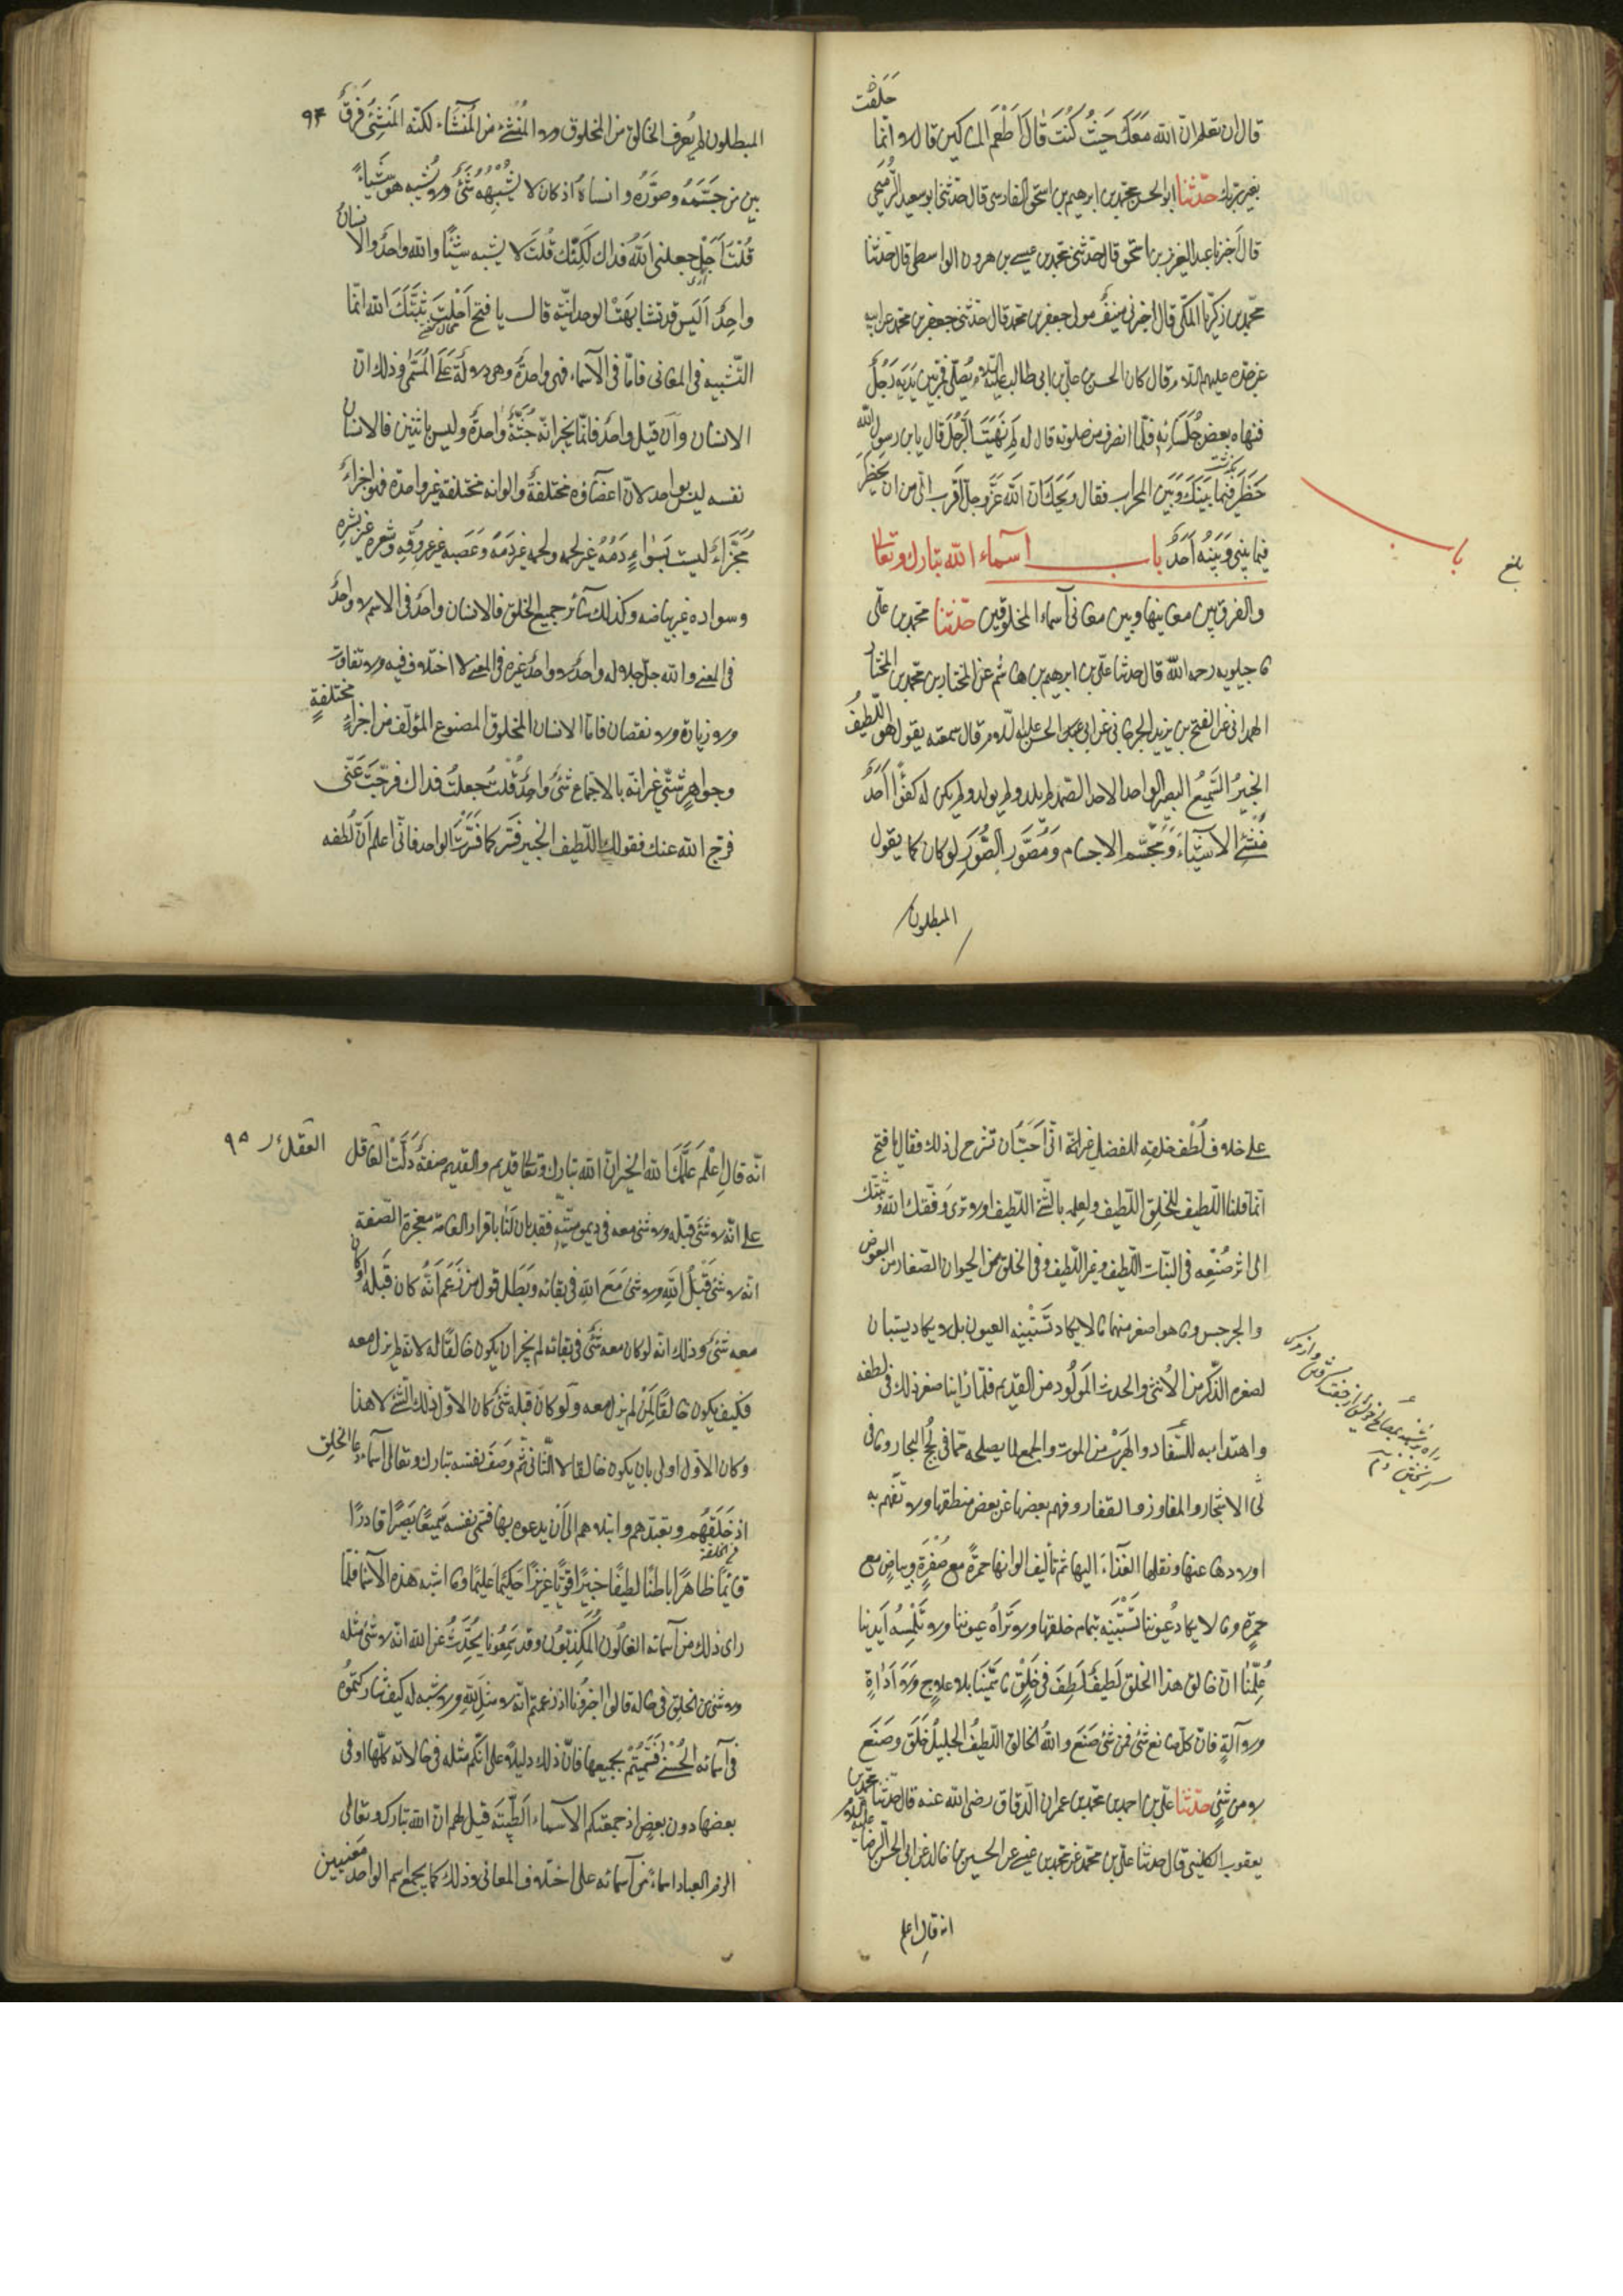 حَلَفْتَ
قال ان تعلم ان الله مَعَكَ حَيْثُ كُنْتَ قالَ اُطْعِمُ المساكين قال لا انّما
بغير ربك حدّثنا ابو الحسن محمّد بن ابرهيم بن اسحق الفارسى قال حدّثنى ابو سعيد الرُّمَيحى
قال اَخبرنا عبد العزيز بن اسحق قال حدّثنى محمّد بن عيسى بن هرون الواسطى قال حدّثنا
محمّد بن زكريّا المكّى قال اخبرنى منيفُ مولى جعفر بن محمد قال حدّثنى جعفر بن محمد عن ابيه
عن جدّه عليهم السّلام قال كان الحسن بن علىّ بن ابى طالب عليه السّلام يُصلّى فمرّ بين يَدَيه رَجُلٌ
فنهاه بعض جُلَسَائِه فلمّا انصرف من صلوته قال له لِمَ نَهَيْتَ الرَّجُلَ قال يابن رسول اللّه
حَظَرَ فيما بَيْنَكَ وَبَيْنَ المحراب فقال وَيْحَكَ انّ الله عَزَّوَجلّ اَقْرَب الىّ من ان يَحْظِرَ
فيما بينى وَبَيْنَه اَحَدٌ باب اسماء الله تبارك وتعالى
والفرق بين معانيها وبين معانى اسماء المخلوقين حدّثنا محمّد بن علىّ
ماجيلويه رحمه اللّه قال حدثنا علىّ بن ابرهيم بن هاشم عن المختار بن محمّد بن المختار
الهمدانى عن الفتح بن يزيد الجرجانى عن ابى الحسن عليه السّلام قال سمعته يقول هو اللّطيفُ
الخبيرُ السَّميعُ البصير الواحد الاحد الصّمد لم يلد ولم يولد ولم يكن له كفوًا اَحَدٌ
مُنْشِئُ الاَشْيَاءِ وَمُجَسِّمُ الاجسام وَمُصَوِّر الصُّوَرِ لو كان كما يقول
المبطلون
باب
بلغ
٩٤
المبطلون لم يُعرف الخالق من المخلوق ولا المُنْشِئ من المُنْشَاء لكنّه المُنْشِئُ فَرَّقَ
بين من جَسَّمَهُ وصَوَّرَه وانشاهُ اذ كان لا يُشْبِهُهُ شَىْءٌ ولا يُشبِه هو شَيْاءً
قُلْتُ اَجَلْ جعلنى الله فداك لَكِنَّكَ قُلتَ لا يشبه شيئًا والله واحدٌ والانسانُ
واحِدٌ اَلَيس قد تشابهَتْ الوحدانيّة قال يا فتح اَحَلْتَ ثَبَّتَكَ الله انّما
التّشبيه فى المعانى فامّا فى الاَسماء فهى واحدةٌ وهى دلالةٌ عَلَى المُسَمَّى وذلك انّ
الانسان وان قيل واحدٌ فانّما يخبر انّه جُثَّةٌ واحدةٌ وليس باثنين فالانسان
نفسه ليس بواحد لانّ اعضاؤه مختلفةٌ والوانه مختلفة غير واحدة فهو اجزاءٌ
مُجَزَّاءٌ ليست بِسَواءٍ دَمُهُ غير لحمه ولحمه غير دَمه وَعَصَبه غير عروقه وشعره غير بشره
وسواده غير بياضه وكذلك سَائر جميع الخلق فالانسان واحدٌ فى الاسم لا واحدٌ
فى المعنى والله جلّ جلاله واحدٌ لا واحد غيره فى المعنى لا اختلاف فيه ولا تفاوت
ولا زيادة ولا نقصان فامّا الانسان المخلوق المصنوع المؤلّف من اجزاءٍ مختلفةٍ
وجواهرٍ شتّى غير انّه بالاجتماع شَىْءٌ واحِدٌ قُلتُ جعلتُ فداك فرّجتَ عَنّى
فرّج الله عنك فقولك اللّطيف الخبير فسّره كما فَسَّرْتَ الواحد فانّى اعلم اَنّ لُطفه
على خلاف لُطْف خلقه للفصل غير انّه انّى اُحِبّ اَن تشرح لى ذلك فقال يا فتح
انّما قلنا اللّطيف للخلق اللّطيف ولعلمه بالشّىْء اللّطيف او لا ترى وَفّقك اللّه وثبّتك
الى اثر صُنْعِه فى النّبات اللّطيف وغير اللّطيف وفى الخلق من الحيوان الصّغار من البعوض
والجرجس وما هو اصغر منهما ما لا يكاد تَسْتَبينه العيون بل لا يكاد يستبان
لصغره الذّكر من الاُنثى والحدث المَولُود من القديم فلمّا راَينا صغر ذلك فى لطفه
واهتداءه للسّفاد والهَرَبَ من الموت والجمع لما يصلحه ممّا فى لُجَج البحار وما فى
لحى الاشجار والمفاوز والقفار وفهم بعضها عن بعض منطقها ولا تفهم به
اولادها عنها ونقلها الغذاء اليها ثم تأليف الوانها حمرةٍ مع صُفْرةٍ وبياضٍ مع
حمرةٍ وما لا يكاد عُيونُنا تَسْتَبينه بتمام خلقها ولا تَرَاهُ عيوننا ولا تَلْمِسُهُ اَيدينا
عَلِمْنا انّ خالق هذا الخلق لَطِيفٌ لَطُفَ فى خَلْقِ ما سَمَّيْنَا بلا علاجٍ وَلا اَداةٍ
ولا آلةٍ فانّ كلّ صانع شىْءٍ فمن شَىْء صَنَعَ واللّهُ الخالق اللّطيفُ الجليلُ خَلَقَ وصَنَعَ
لا من شىْءٍ حدّثنا علىّ بن احمد بن محمّد بن عمران الدّقاق رضى الله عنه قال حدّثنا محمّد بن
يعقوب الكلينى قال حدثنا علىّ بن محمّد عن محمّد بن عيسى عن الحسين بن خالد عن ابى الحسن الرّضا عليه السّلام
انه قال اعلم
٩٥
العقل
انّه قال اِعْلَم عَلَّمَكَ الله الخير انّ الله تبارك وتعالى قديم والقديم صفةٌ دَلَّتْ العاقل
على انّه لا شىْءَ قبله ولا شىْء معه فى ديموميّتِه فقد بان لَنا باقرار العامّة معجزة الصّفة
انه لا شىْءَ قَبْلَ اللهِ ولا شىْءَ مَعَ اللهِ فى بقائه وبَطَل قول من زَعَمَ اَنَّهُ كان قَبْلَه او كان
معه شَىْءٌ وذلك انّه لو كان معه شَىْءٌ فى بقائه لم يجز ان يكون خالقًا له لانه لم يزل معه
فكيف يكون خالقًا لِمَنْ لم يزل معه ولَو كان قبله شَىْءٌ كان الاوّل ذلك الشّىْء لا هذا
وكان الاوّل اولى بان يكون خالقا للثّانى ثمّ وَصَفَ نفسه تبارك وتعالى باَسماءٍ دعا الخلق
اذ خَلَقَهُم وتعبّدهم وابتلاهم الى اَنْ يدعوه بها فسمّى نفسه سَميعًا بَصيرًا قادرًا
قائمًا ظاهرًا باطنًا لطيفًا خبيرًا قويًّا عزيزًا حكيمًا عليمًا وما اشبه هذه الاَسماء فلمّا
راى ذلك من اَسمائه الغالُون المُكَذِّبُون وقد سَمِعُونا يُحَدِّثُ عن اللّه انّه لا شىْءَ مثله
ولا شىْءَ من الخلق فى حاله قالوا اخبرُونا اذ زعمتم انّه لا مِثلَ لِلّهِ ولا شبه له كيف شاركتموهُ
فى اَسمائه الحُسْنى فَتَسَمَّيْتُمْ بجميعها فانّ ذلك دليلاً على انّكم مثله فى حالاته كلّها او فى
بعضها دون بعضٍ اذ جمعتكم الاَسماء الطّيّبَة قيل لهم انّ الله تبارك وتعالى
الزم العباد اسماءً من اَسمائه على اختلاف المعانى وذلك كما يجمع اسم الواحد مَعْنيين